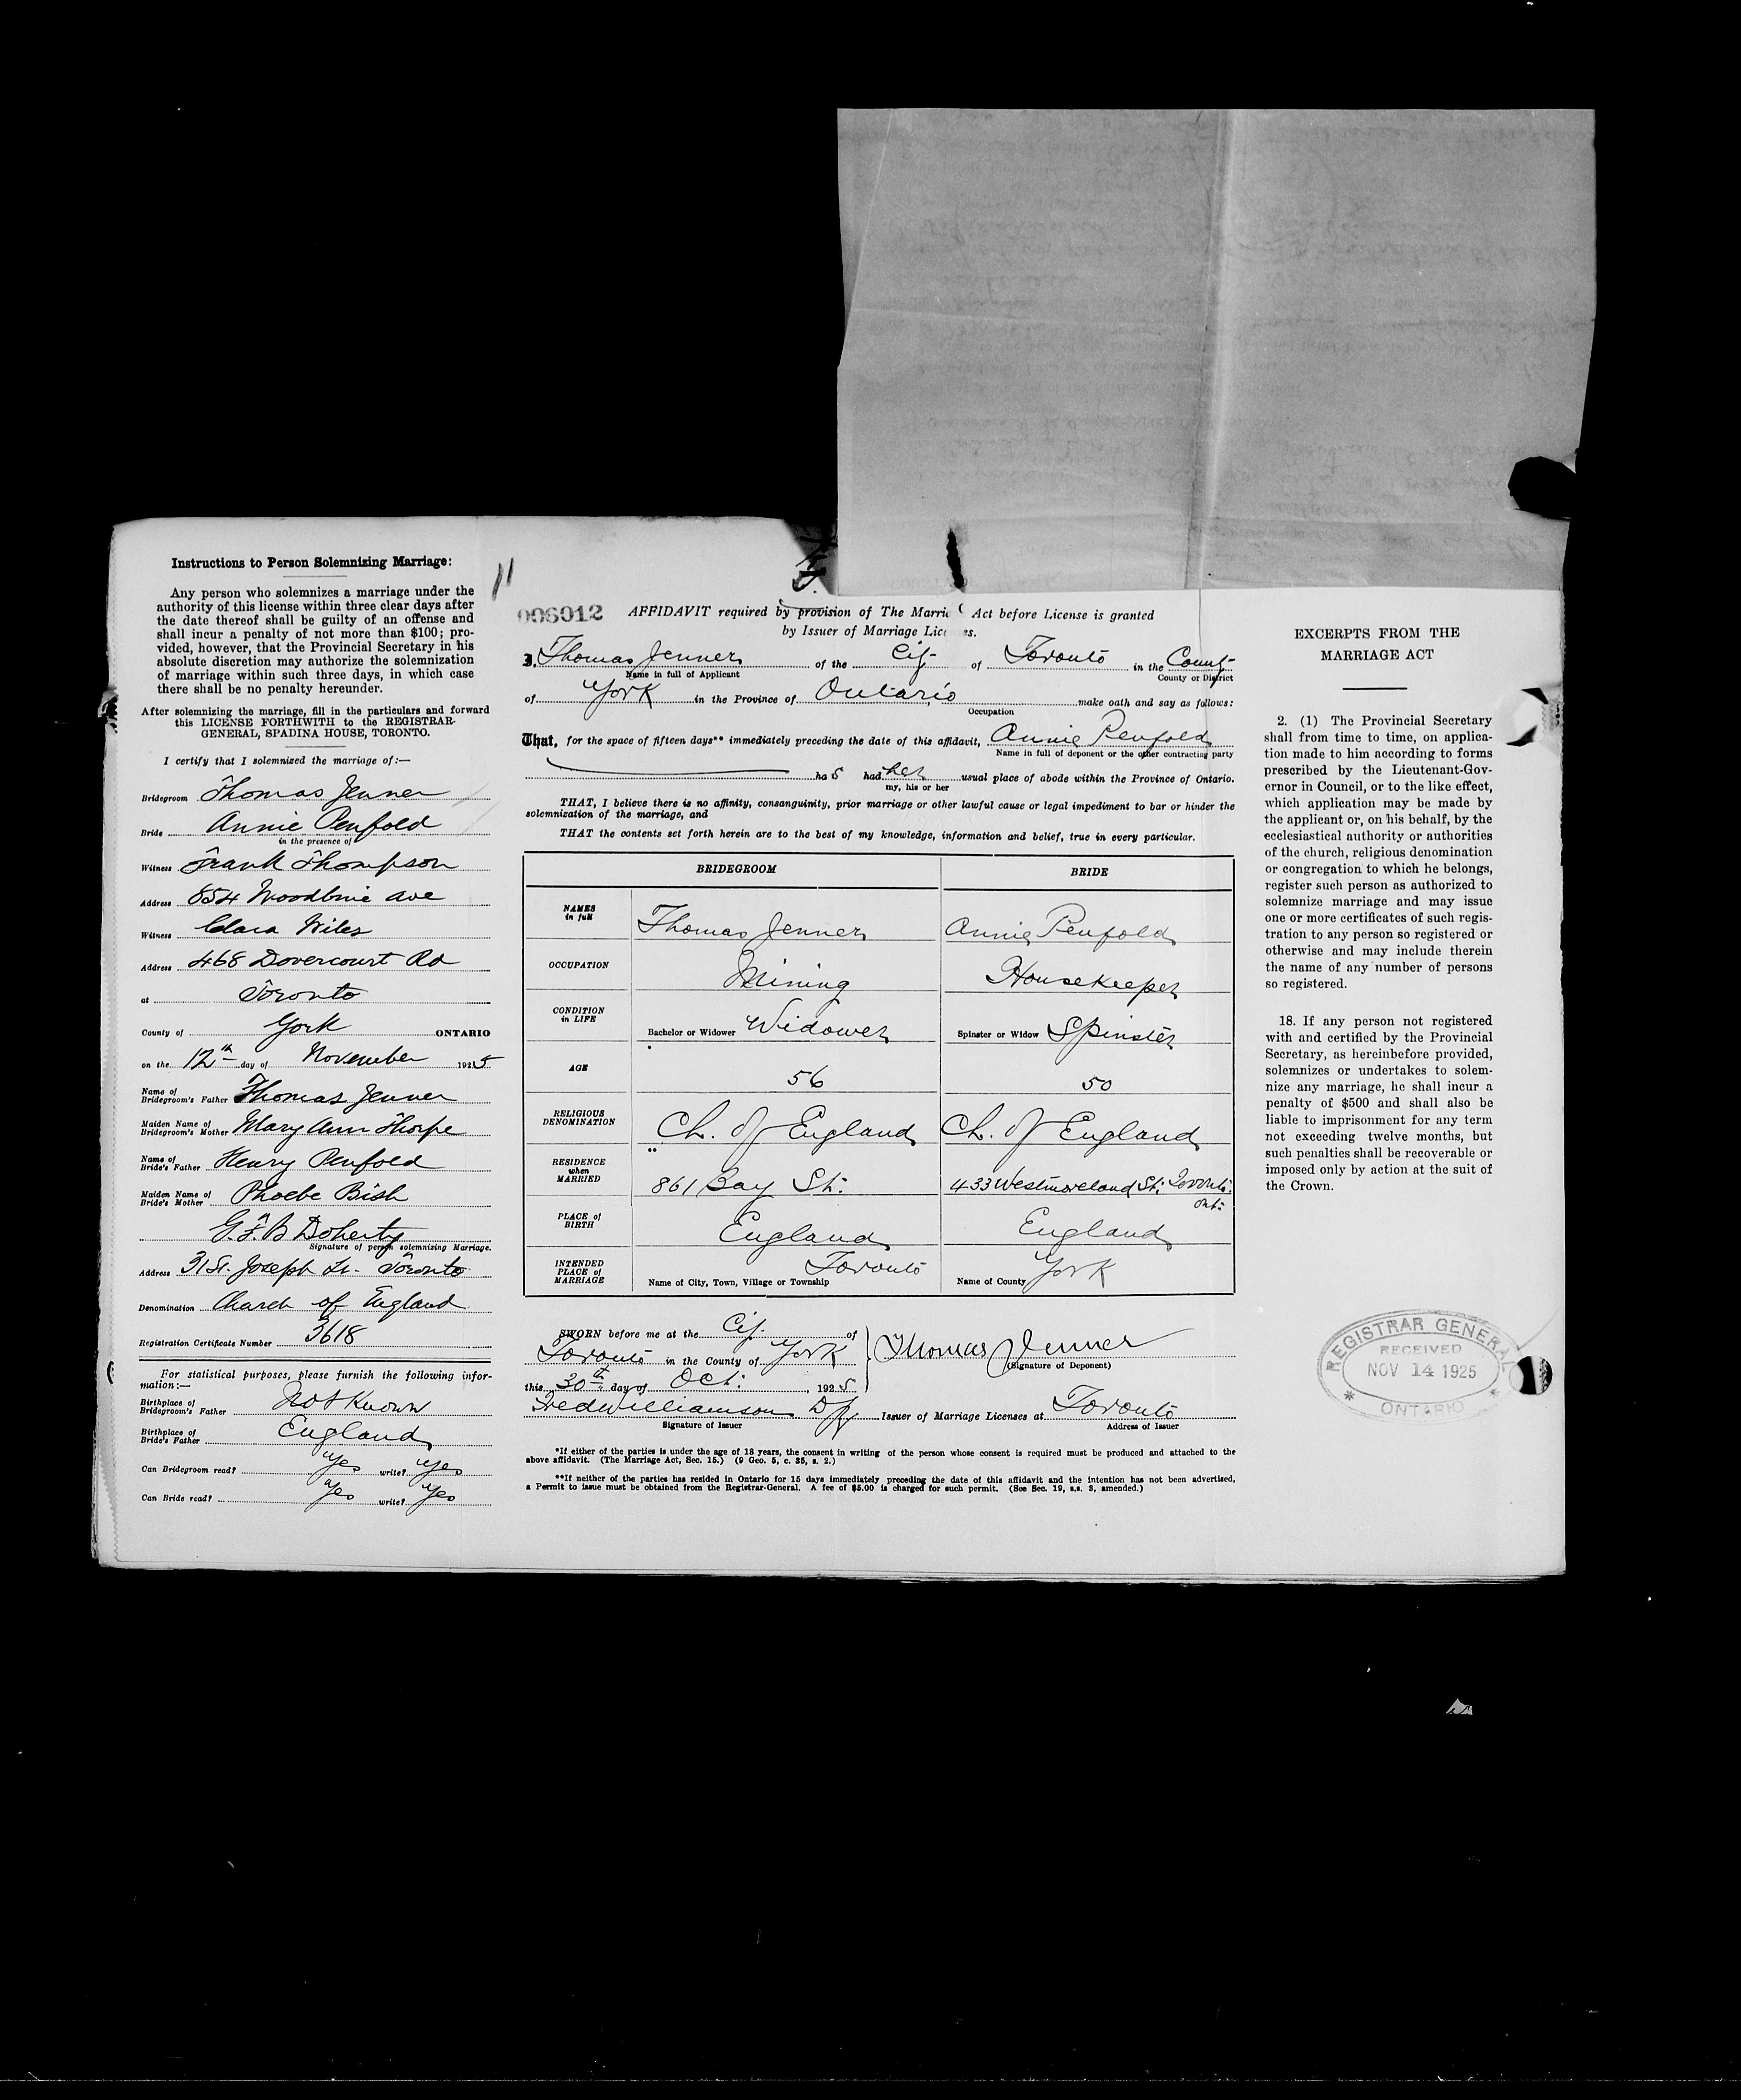 Instructions to Person Solemnizing Marriage:
Any person who solemnizes a marriage under the
authority of this license within three clear days after
the date thereof shall be guilty of an offense and
shall incur a penalty of not more than $100; pro-
vided, however, that the Provincial Secretary in his
absolute discretion may authorize the solemnization
of marriage within such three days, in which case
there shall be no penalty hereunder.
After solemnizing the marriage, fill in the particulars and forward
this LICENSE FORTHWITH to the REGISTRAR-
GENERAL, SPADINA HOUSE, TORONTO.
I certify that I solemnized the marriage of:—
Bridegroom Thomas Jenner
Bride Annie Penfold
in the presence of
Witness Frank Thompson
Address 854 Woodbine Ave
Witness Clara Wiles
Address 468 Dovercourt Rd
at Toronto
County of York ONTARIO
on the 12th day of November 1925
Name of Bridegroom's Father Thomas Jenner
Maiden Name of Bridegroom's Mother Mary Ann Thorpe
Name of Bride's Father Henry Penfold
Maiden Name of Bride's Mother Phoebe Bish
G. F. B Doherty
Signature of person solemnizing Marriage.
Address 31 St. Joseph St. Toronto
Denomination Church of England
Registration Certificate Number 3618
For statistical purposes, please furnish the following infor-
mation:—
Birthplace of Bridegroom's Father Not Known
Birthplace of Bride's Father England
Can Bridegroom read? Yes write? Yes
Can Bride read? Yes write? Yes
006012
AFFIDAVIT required by provision of The Marria Act before License is granted
by Issuer of Marriage Lic es.
I, Thomas Jenner of the City of Toronto in the County
Name in full of Applicant County or District
of York in the Province of Ontario make oath and say as follows:
Occupation
That, for the space of fifteen days** immediately preceding the date of this affidavit, Annie Penfold
Name in full of deponent or the other contracting party
has had her usual place of abode within the Province of Ontario.
my, his or her
THAT, I believe there is no affinity, consanguinity, prior marriage or other lawful cause or legal impediment to bar or hinder the
solemnization of the marriage, and
THAT the contents set forth herein are to the best of my knowledge, information and belief, true in every particular.
BRIDEGROOM BRIDE
NAMES in full Thomas Jenner Annie Penfold
OCCUPATION Mining Housekeeper
CONDITION in LIFE Bachelor or Widower Widower Spinster or Widow Spinster
AGE 56 50
RELIGIOUS DENOMINATION Ch. of England Ch. of England
RESIDENCE when MARRIED 861 Bay St. 433 Westmoreland St. Toronto. Ont.
PLACE of BIRTH England England
INTENDED PLACE of MARRIAGE Name of City, Town, Village or Township Toronto Name of County York
SWORN before me at the City of
Toronto in the County of York
this 30th day of Oct. 1925
Thomas Jenner
(Signature of Deponent)
Fred Williamson Issuer of Marriage Licenses at Toronto
Signature of Issuer Address of Issuer
*If either of the parties is under the age of 18 years, the consent in writing of the person whose consent is required must be produced and attached to the
above affidavit. (The Marriage Act, Sec. 15.) (9 Geo. 5, c. 35, s. 2.)
**If neither of the parties has resided in Ontario for 15 days immediately preceding the date of this affidavit and the intention has not been advertised,
a Permit to issue must be obtained from the Registrar-General. A fee of $5.00 is charged for such permit. (See Sec. 19, s.s. 3, amended.)
EXCERPTS FROM THE
MARRIAGE ACT
2. (1) The Provincial Secretary
shall from time to time, on applica-
tion made to him according to forms
prescribed by the Lieutenant-Gov-
ernor in Council, or to the like effect,
which application may be made by
the applicant or, on his behalf, by the
ecclesiastical authority or authorities
of the church, religious denomination
or congregation to which he belongs,
register such person as authorized to
solemnize marriage and may issue
one or more certificates of such regis-
tration to any person so registered or
otherwise and may include therein
the name of any number of persons
so registered.
18. If any person not registered
with and certified by the Provincial
Secretary, as hereinbefore provided,
solemnizes or undertakes to solem-
nize any marriage, he shall incur a
penalty of $500 and shall also be
liable to imprisonment for any term
not exceeding twelve months, but
such penalties shall be recoverable or
imposed only by action at the suit of
the Crown.
REGISTRAR GENERAL
RECEIVED
NOV 14 1925
ONTARIO